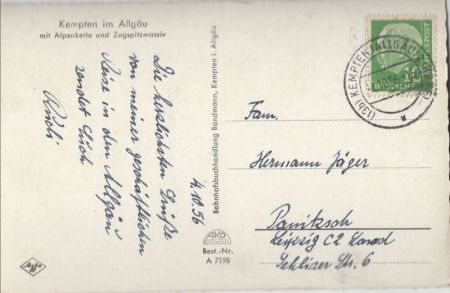 Kempten im Allgäu
mit Alpenkette und Zugspitzmassiv
Die herzlichsten Grüße
von meiner geschäftlichen
Reise in den Allgäu
sendet Euch
Rudi
4.10.56
Bahnhofsbuchhandlung Bandmann, Kempten i. Allgäu
Best.-Nr.
A 7198
Agfa
DEUTSCHE
BUNDESPOST
(13b) KEMPTEN (ALLGÄU)
Fam.
Hermann Jäger
Panitzsch
Leipzig C2
Str. 6